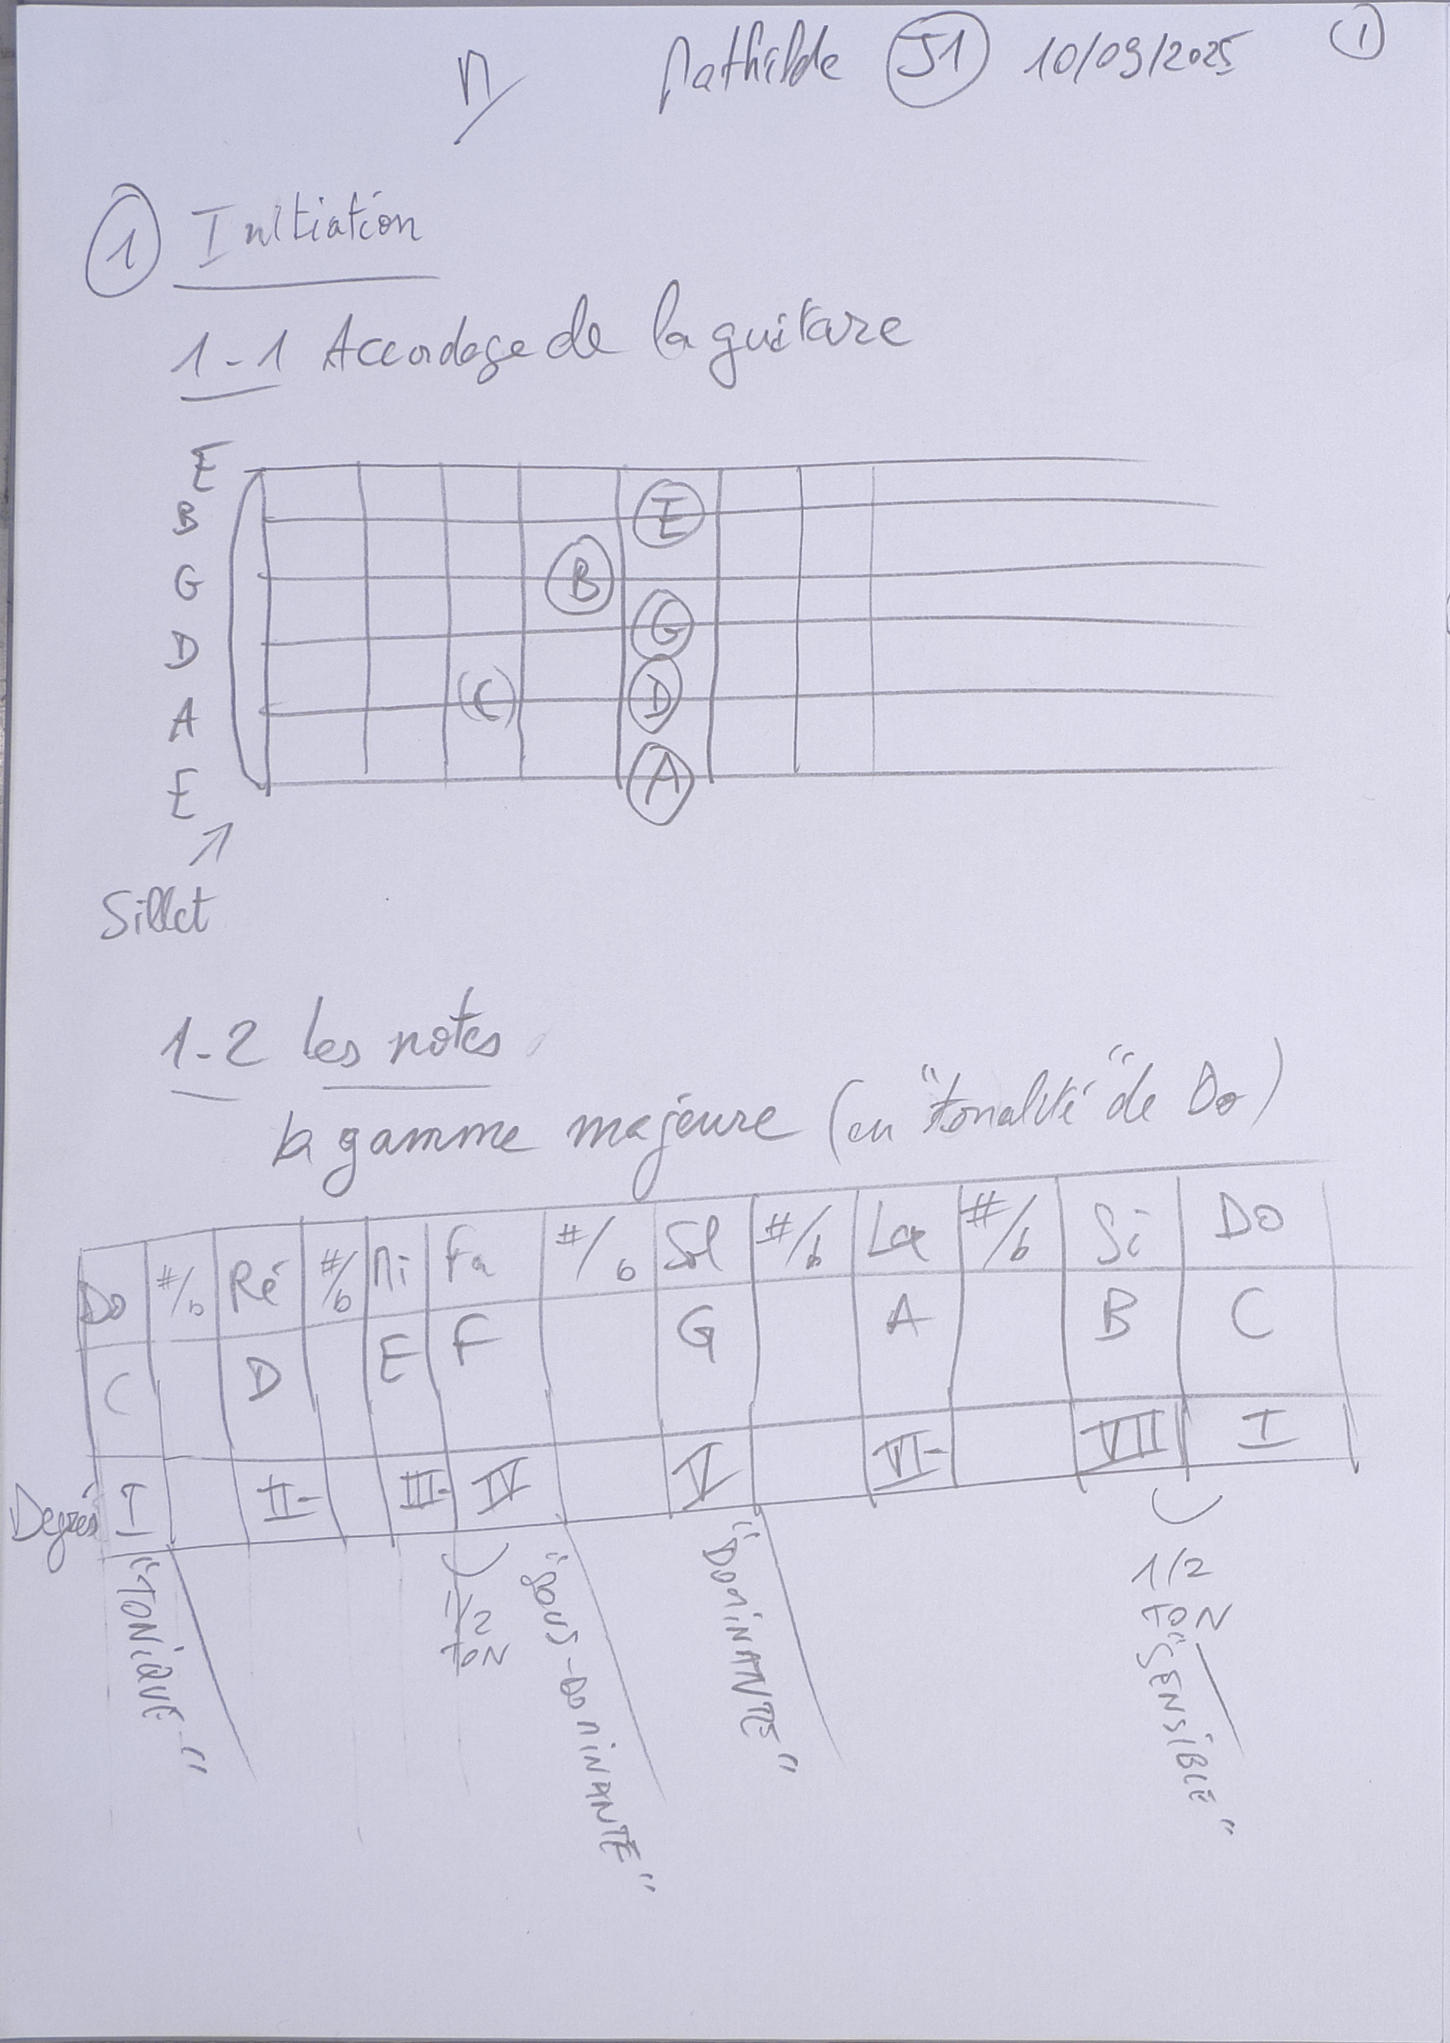 Mathilde J1 10/09/2025 1
1 Initiation
1-1 Accordage de la guitare
E
B E
G B
D G
A (C) D
E A
Sillet
1-2 Les notes
la gamme majeure (en "tonalité" de Do)
Do #/b Ré #/b Mi Fa #/b Sol #/b La #/b Si Do
C D E F G A B C
Degrés I II- III- IV V VI- VII I
"TONIQUE"
1/2
TON
"SOUS-DOMINANTE"
"DOMINANTE"
1/2
TON
"SENSIBLE"